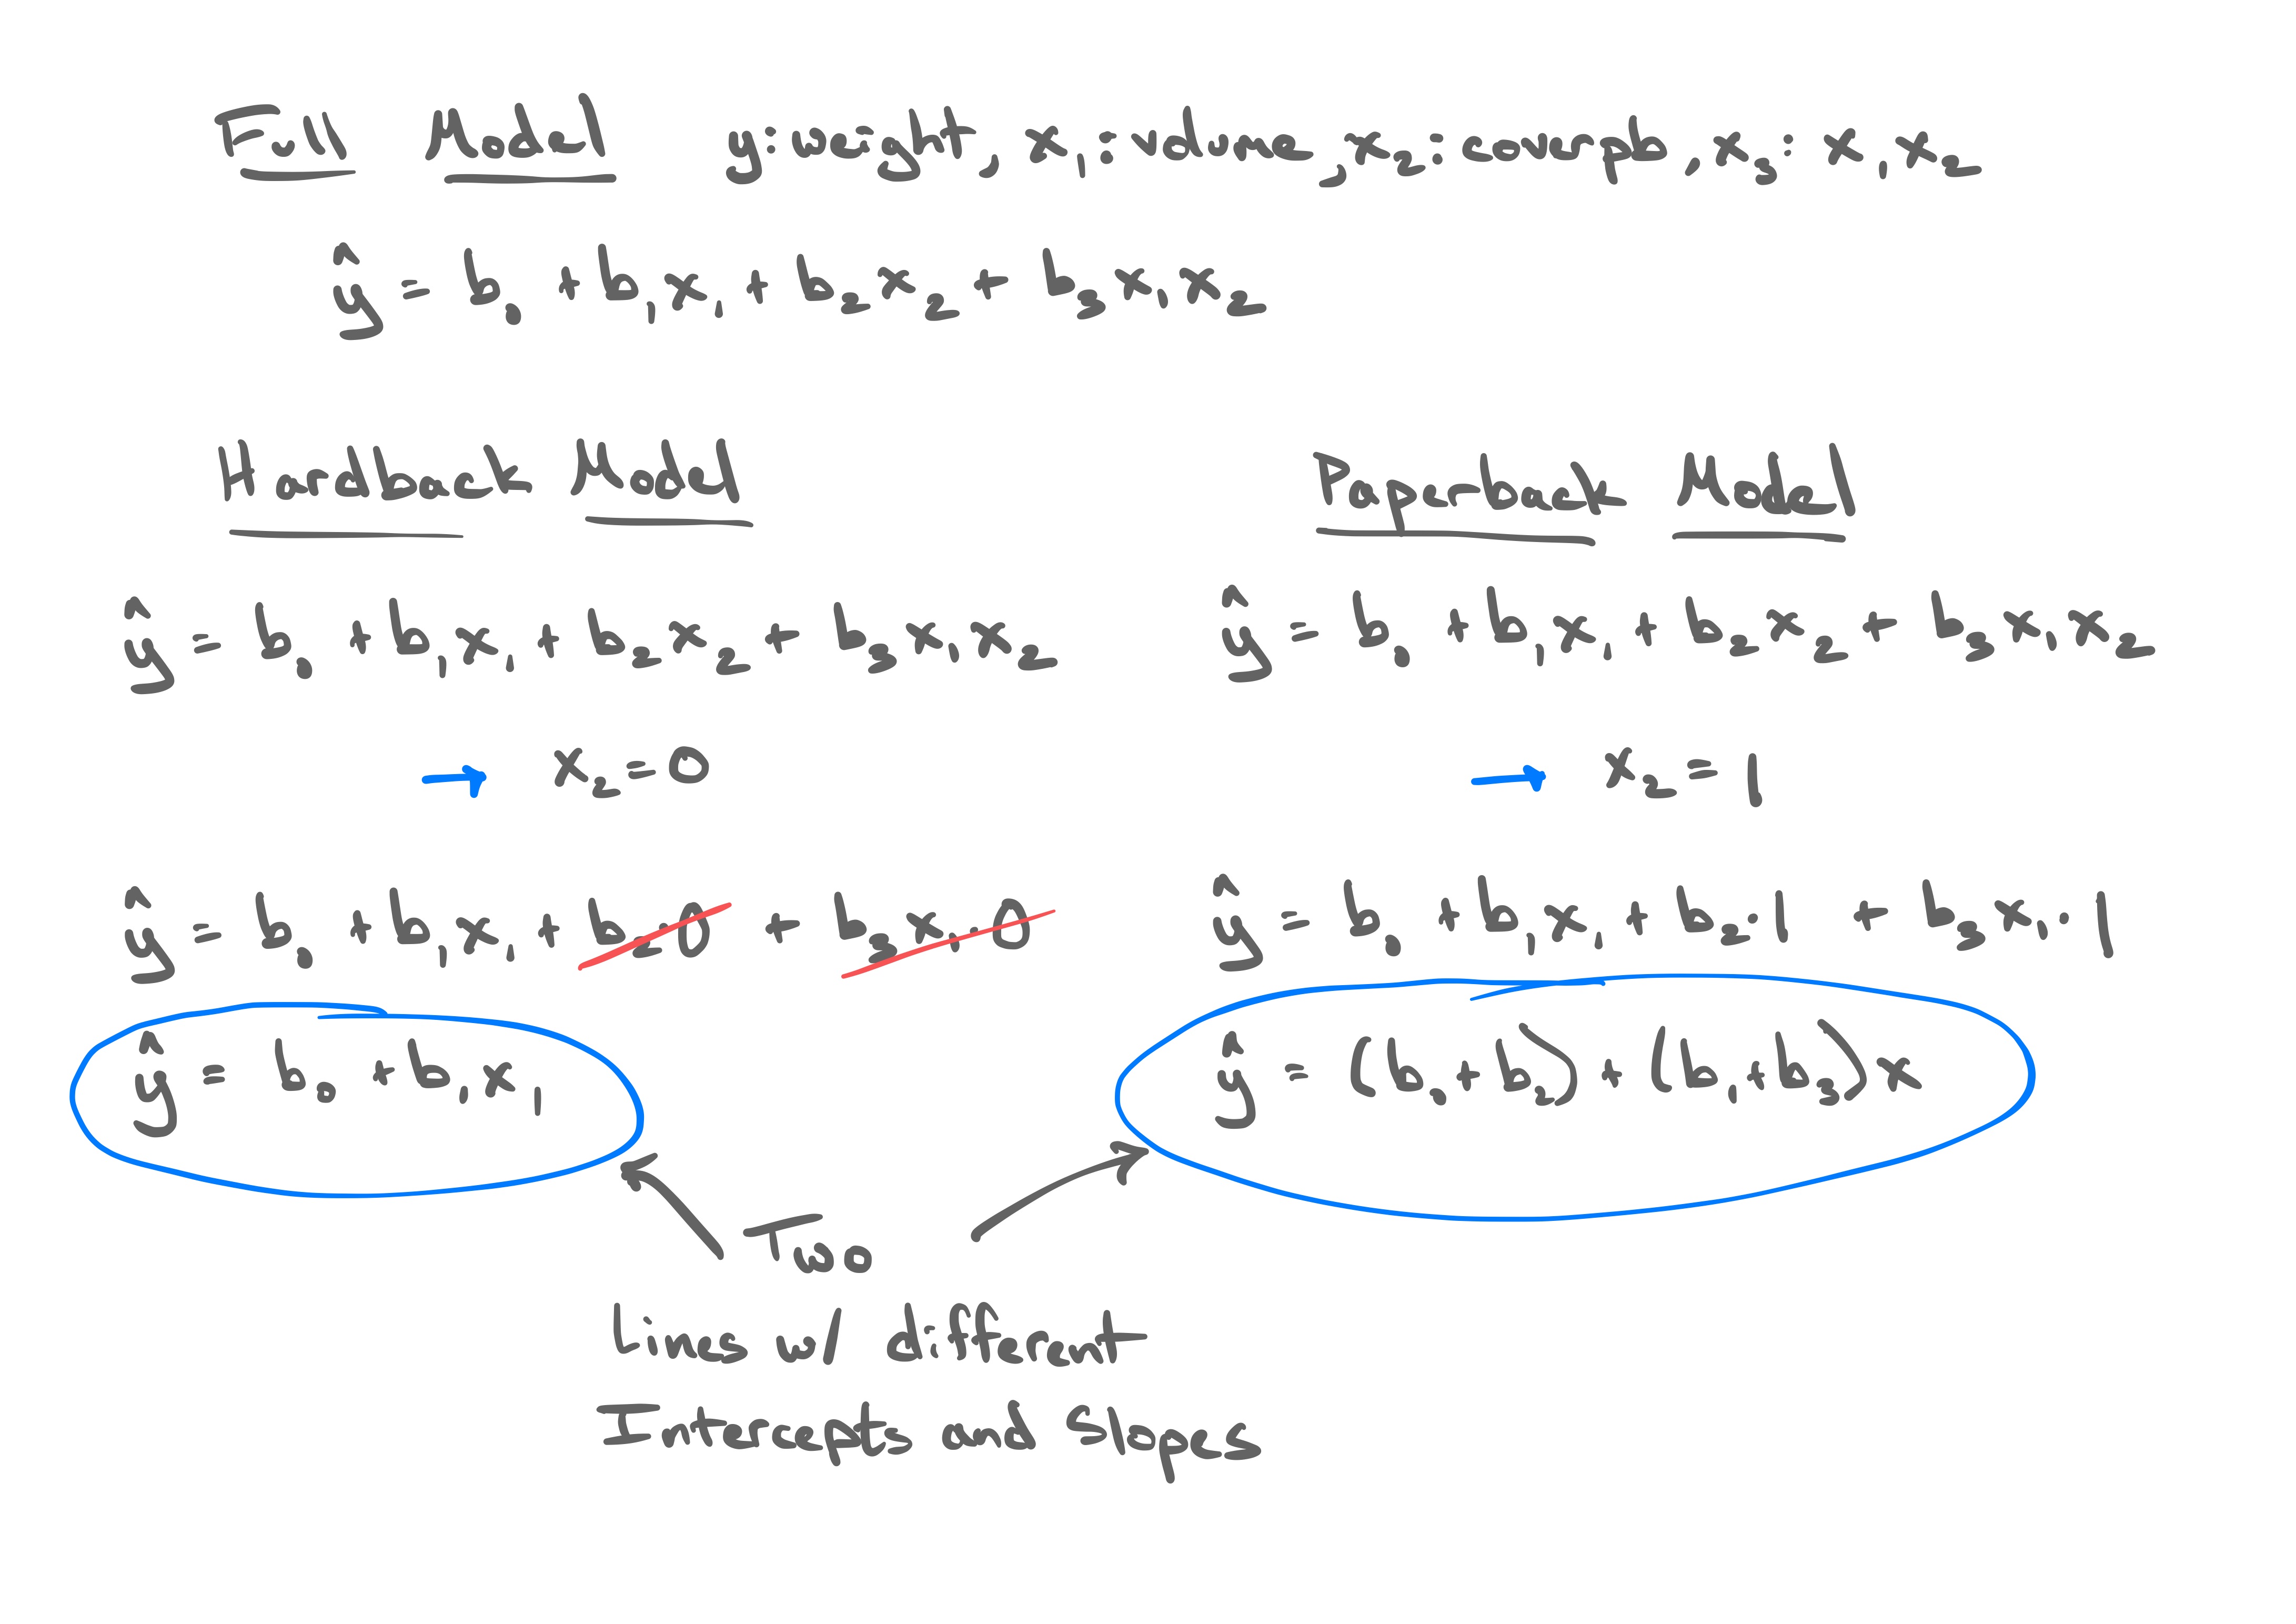 Full Model y: weight, x₁: volume, x₂: coverpb, x₃: x₁x₂
ŷ = b₀ + b₁x₁ + b₂x₂ + b₃x₁x₂
Hardback Model
ŷ = b₀ + b₁x₁ + b₂x₂ + b₃x₁x₂
→ x₂ = 0
ŷ = b₀ + b₁x₁ + b₂·0 + b₃x₁·0
ŷ = b₀ + b₁x₁
Paperback Model
ŷ = b₀ + b₁x₁ + b₂x₂ + b₃x₁x₂
→ x₂ = 1
ŷ = b₀ + b₁x₁ + b₂·1 + b₃x₁·1
ŷ = (b₀ + b₂) + (b₁ + b₃)x
Two
Lines w/ different
Intercepts and Slopes